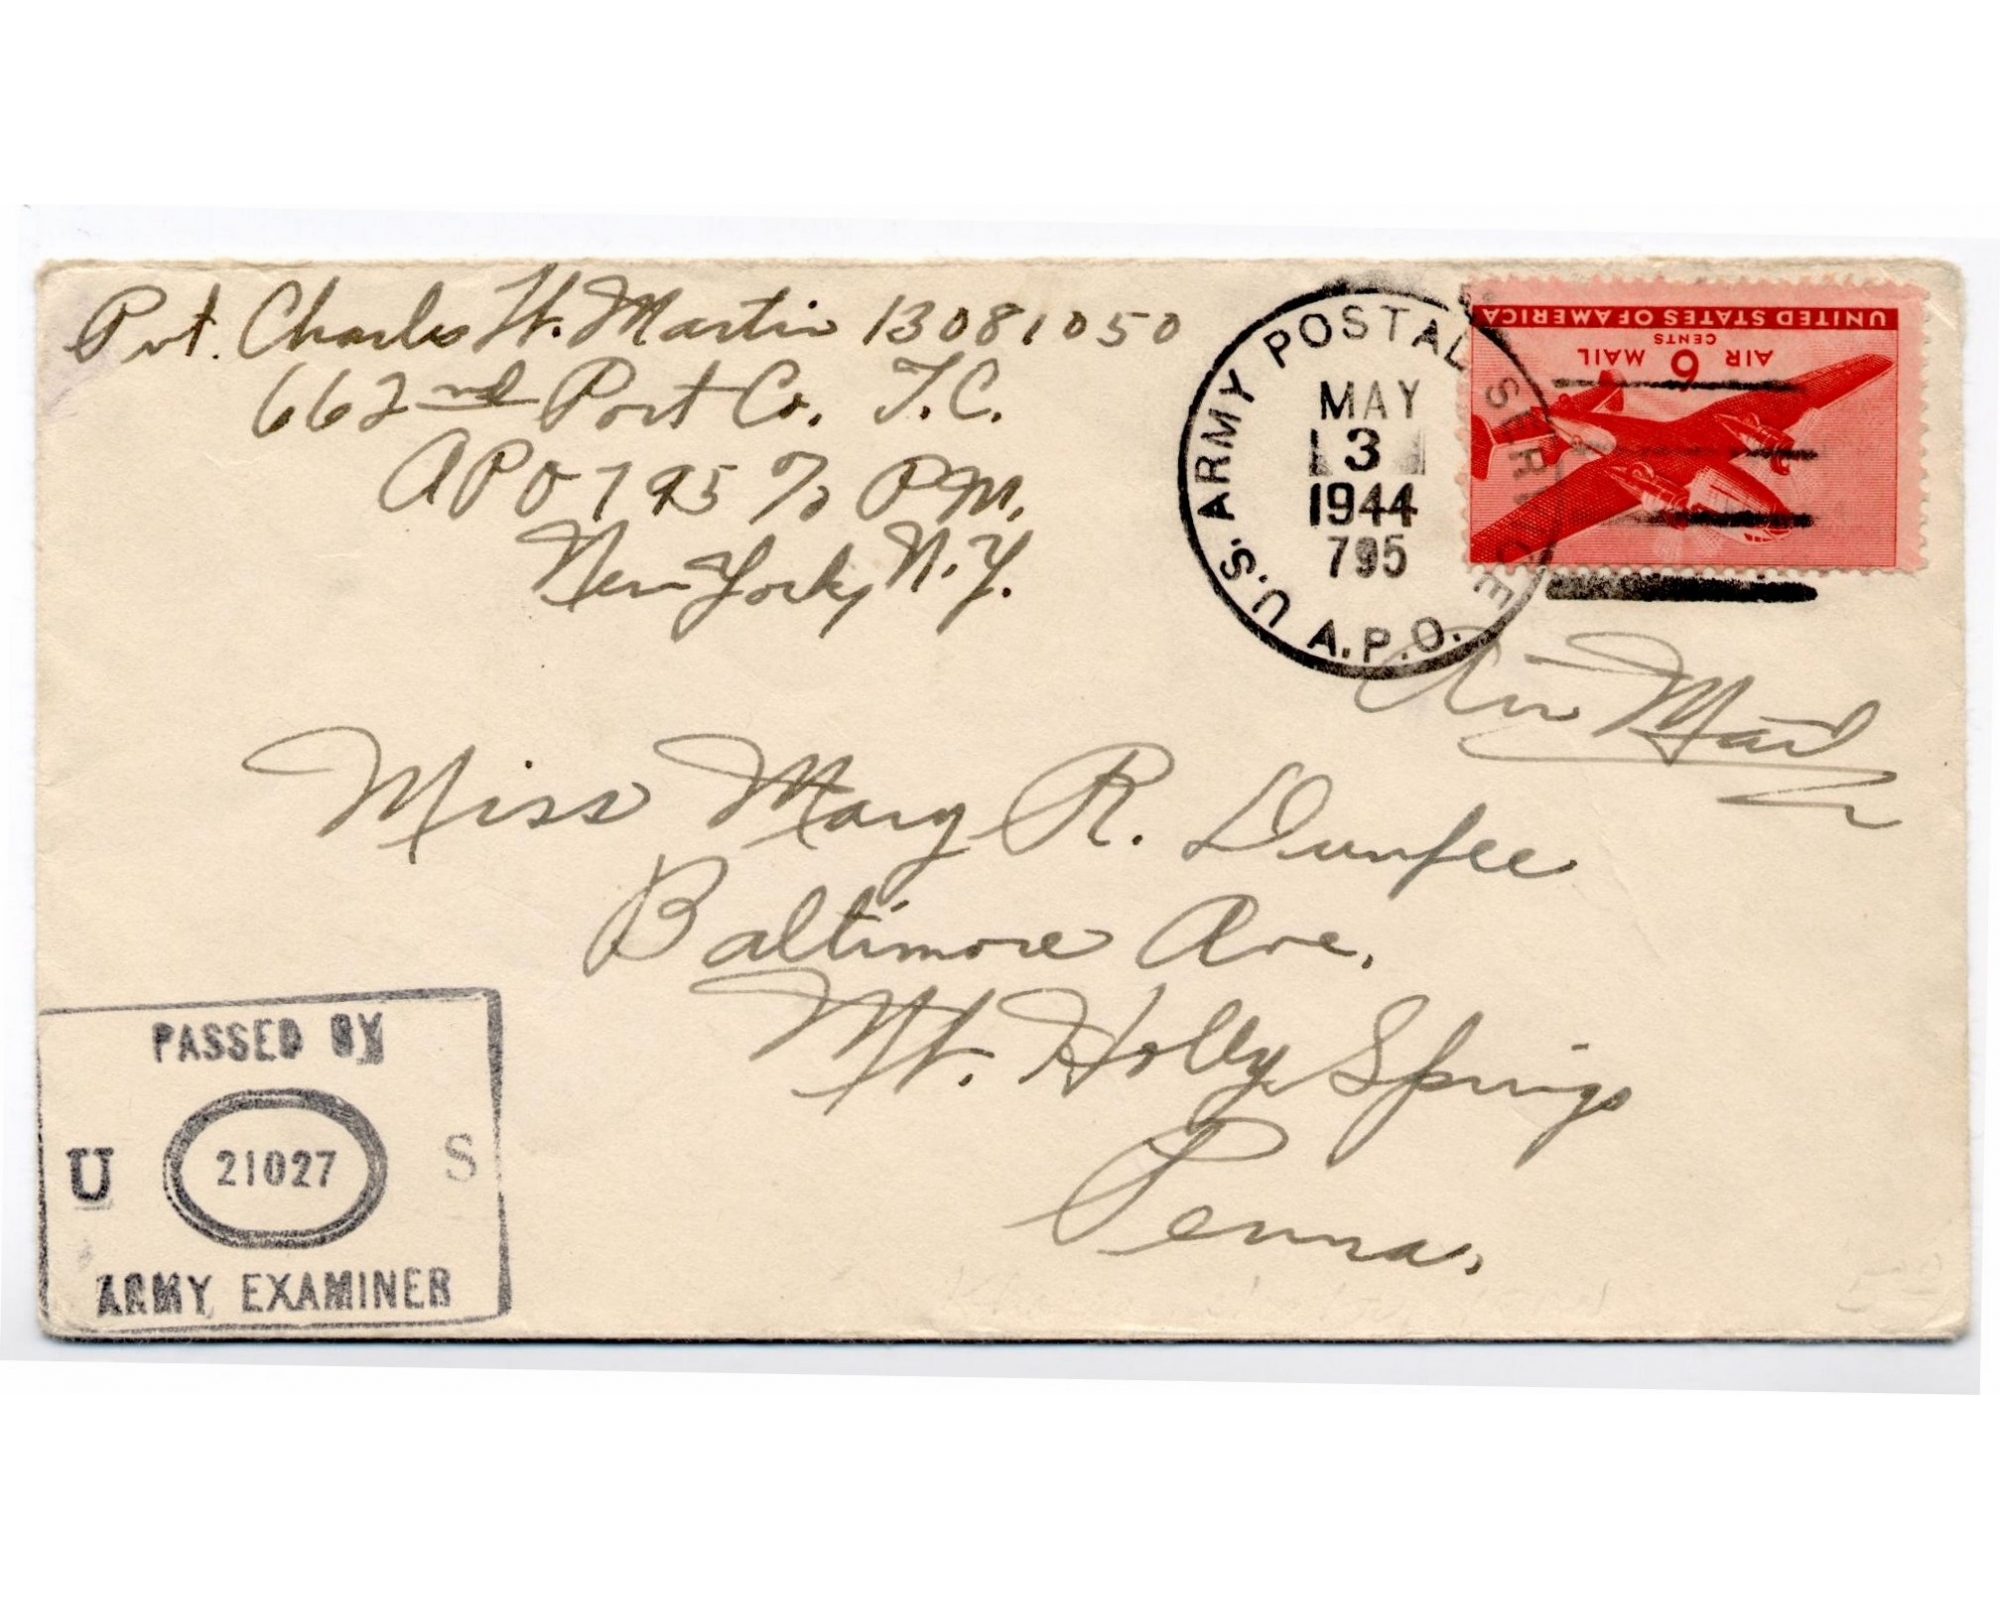 Pvt. Charles H. Martin 13081050
662nd Port Co. T.C.
APO 795 c/o P.M.
New York, N.Y.
U.S. ARMY POSTAL SERVICE
MAY
3
1944
795
A.P.O.
UNITED STATES OF AMERICA
CENTS
AIR 6 MAIL
Air Mail
Miss Mary R. Dunfee
Baltimore Ave.
Mt. Holly Springs
Penna.
PASSED BY
U 21027 S
ARMY EXAMINER